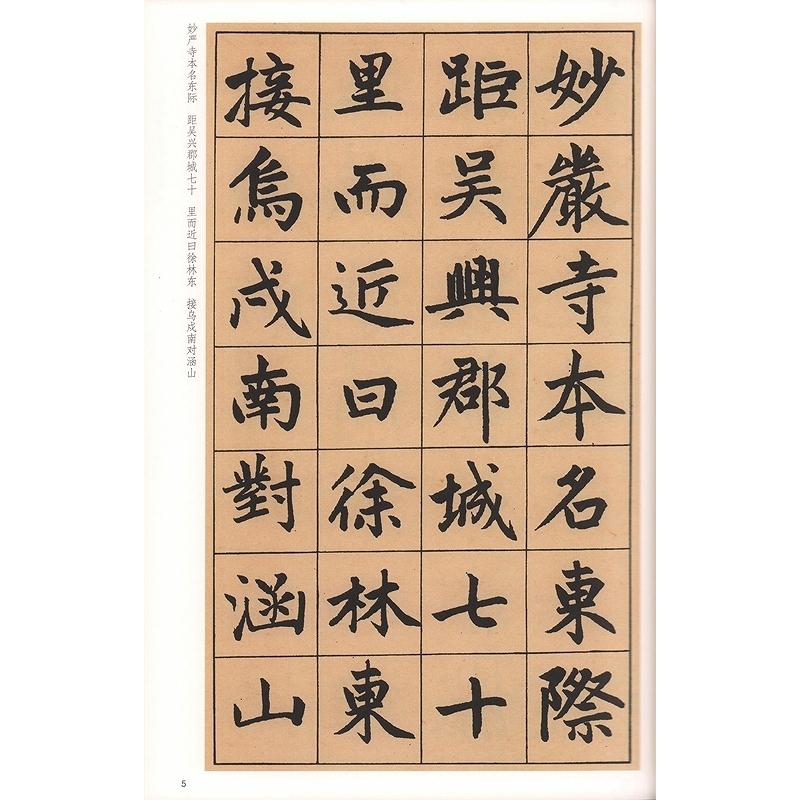 妙嚴寺本名東際
距吴興郡城七十
里而近曰徐林東
接烏戍南對涵山
妙严寺本名东际 距吴兴郡城七十 里而近曰徐林东 接乌戍南对涵山
5